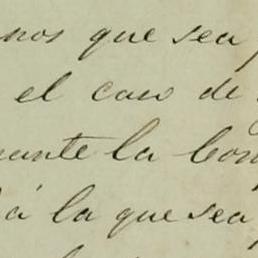 nos que sea
el caso de
ante la Com
á la que sea